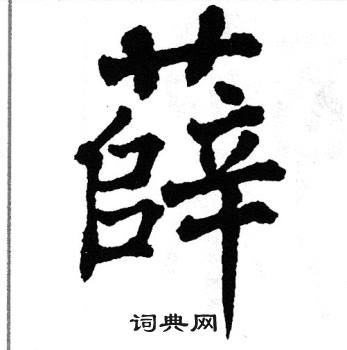 薛
词典网